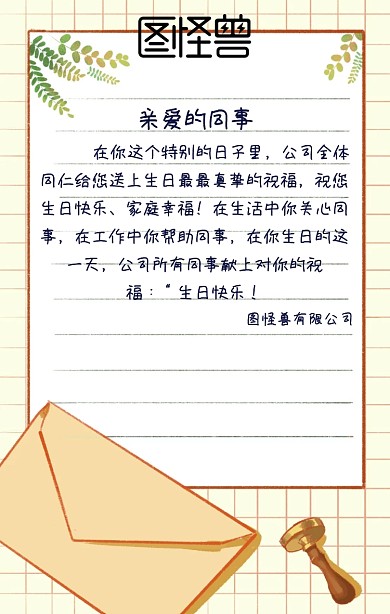 图怪兽
亲爱的同事
在你这个特别的日子里，公司全体
同仁给您送上生日最最真挚的祝福，祝您
生日快乐、家庭幸福！在生活中你关心同
事，在工作中你帮助同事，在你生日的这
一天，公司所有同事献上对你的祝
福：“生日快乐！
图怪兽有限公司